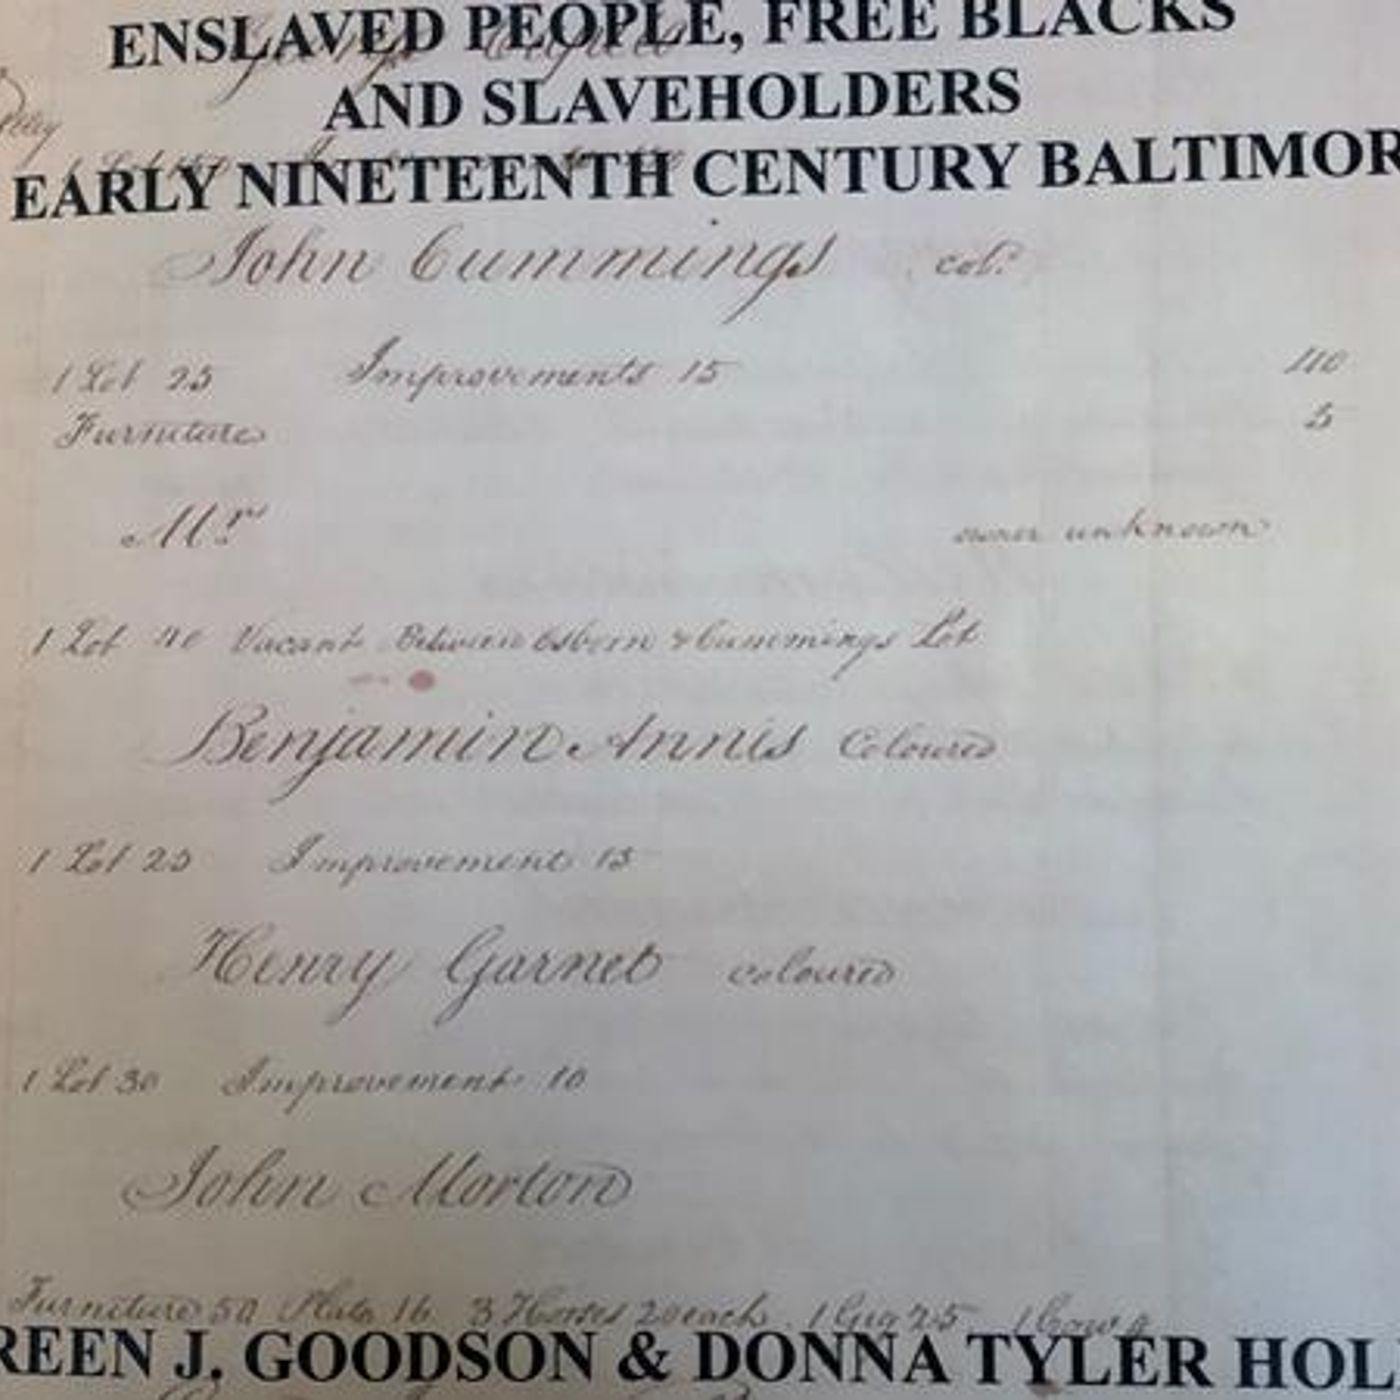 ENSLAVED PEOPLE, FREE BLACKS
AND SLAVEHOLDERS
EARLY NINETEENTH CENTURY BALTIMOR
John Cummings col.
1 Lot 25 Improvements 15 40
Furniture 5
Mr. owner unknown
1 Lot 40 Vacant Between Osborn & Cummings Lot
Benjamin Annis Coloured
1 Lot 25 Improvement 15
Henry Garnet coloured
1 Lot 30 Improvement 10
John Morton
Furniture 50 Plate 16 3 Horses 20 each 1 Gig 25 1 Cow
REEN J. GOODSON & DONNA TYLER HOL